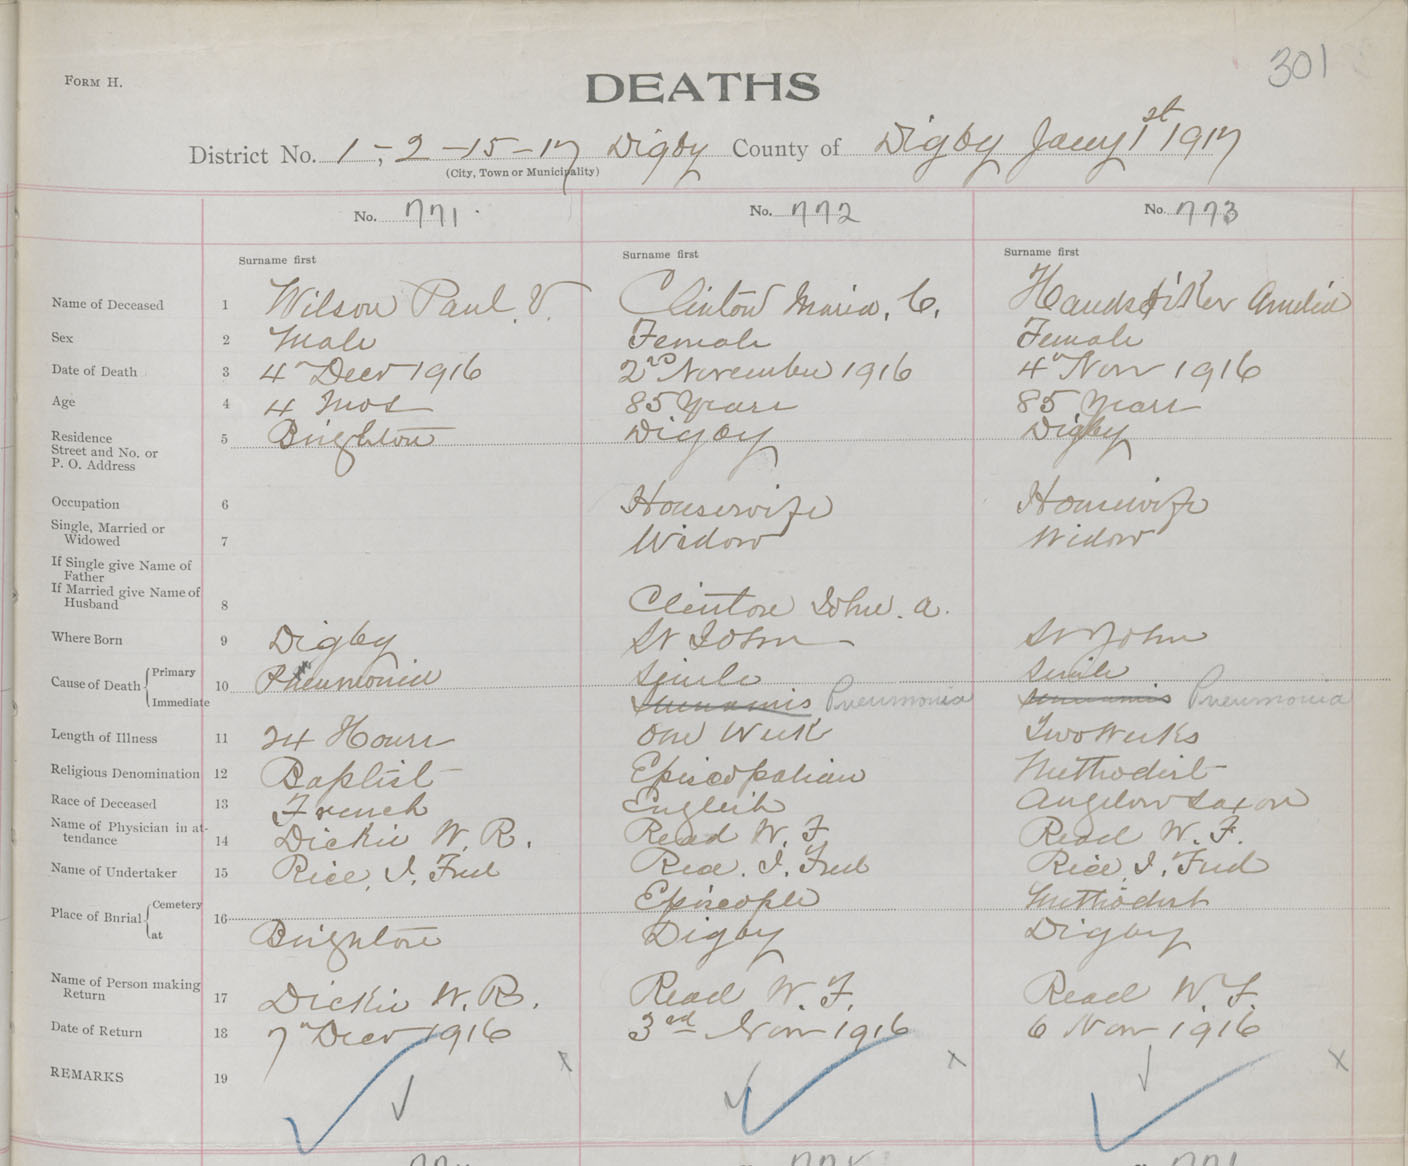 301
FORM H.
DEATHS
District No. 1-2-15-17 Digby County of Digby Jany 1st 1917
(City, Town or Municipality)
No. 771 No. 772 No. 773
Surname first Surname first Surname first
Name of Deceased 1 Wilson Paul. V. Clinton Maria. C. Amelia
Sex 2 Male Female Female
Date of Death 3 4" Decr 1916 2nd November 1916 4" Novr 1916
Age 4 4 Mos 85 Years 85 Years
Residence
Street and No. or
P. O. Address 5 Brighton Digby Digby
Occupation 6 Housewife Housewife
Single, Married or
Widowed 7 Widow Widow
If Single give Name of
Father
If Married give Name of
Husband 8 Clinton John. A.
Where Born 9 Digby St John St John
Cause of Death Primary 10 Pneumonia Senile Senile
Immediate Pneumonia Pneumonia
Length of Illness 11 24 Hours One Week Two Weeks
Religious Denomination 12 Baptist Episcopalian Methodist
Race of Deceased 13 French English Angelow Saxon
Name of Physician in at-
tendance 14 Dickie W. R. Read W. F. Read W. F.
Name of Undertaker 15 Rice, I. Fred Rice. I. Fred Rice, I. Fred
Place of Burial Cemetery 16 Episcople Methodist
at Brighton Digby Digby
Name of Person making
Return 17 Dickie W. R. Read W. F. Read W. F.
Date of Return 18 7" Decr 1916 3rd Novr 1916 6 Novr 1916
REMARKS 19 x x x